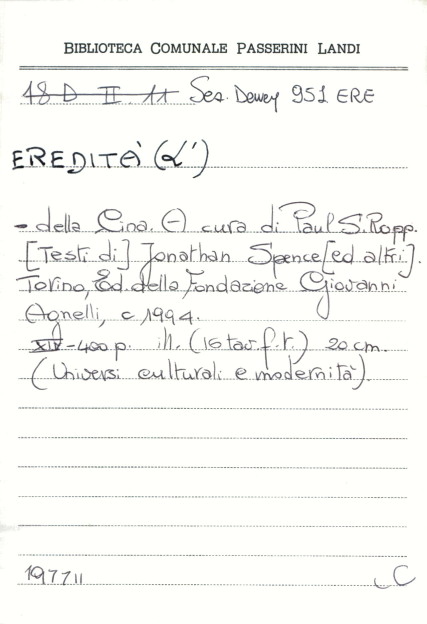 BIBLIOTECA COMUNALE PASSERINI LANDI
18 D II 11 Sez. Dewey 951 ERE
EREDITÀ (L')
- della Cina. (-) cura di Paul S. Ropp.
[Testi di] Jonathan Spence [ed altri].
Torino, Ed. della Fondazione Giovanni
Agnelli, c 1994.
XIV-400 p. ill. (16 tav. f.t.) 20 cm.
(Universi culturali e modernità).
197711
C